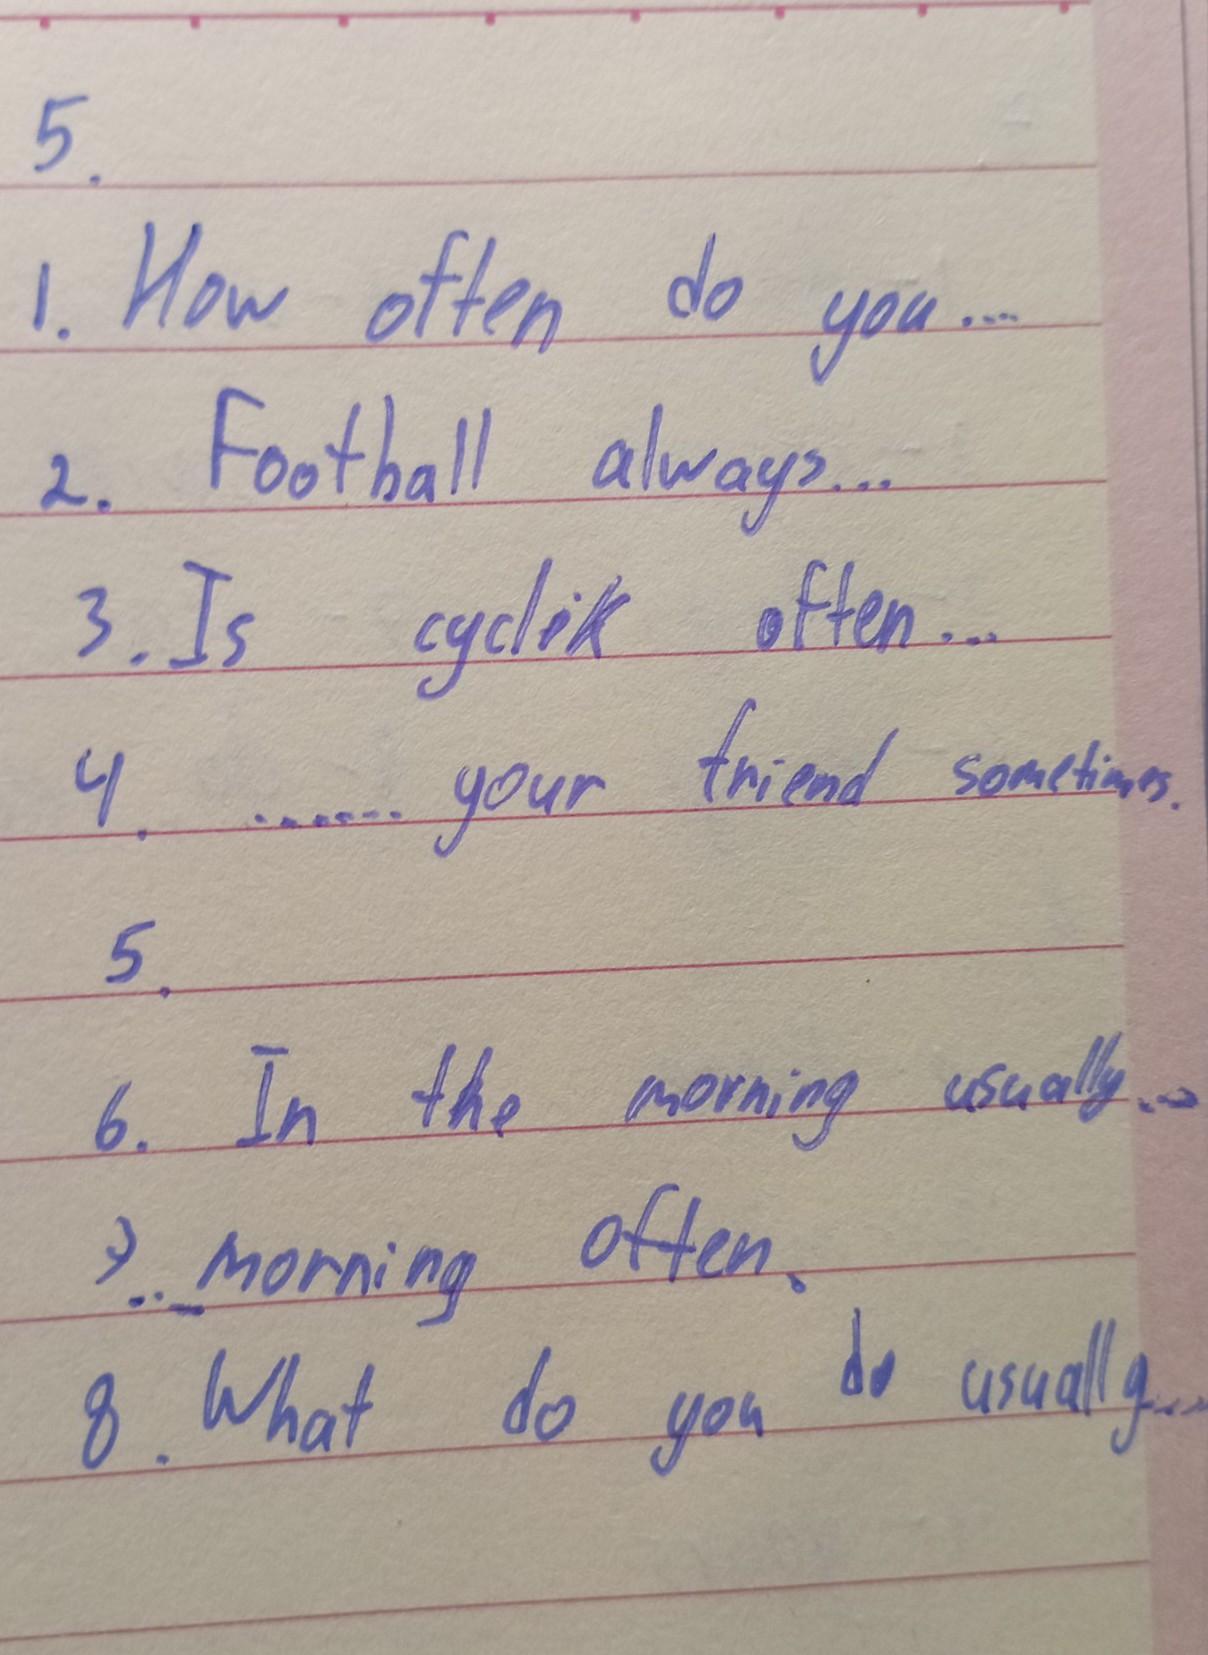 5.
1. How often do you...
2. Football always...
3. Is cyclik often...
4. ....... your friend sometimes.
5.
6. In the morning usually...
7... morning often.
8. What do you do usually...